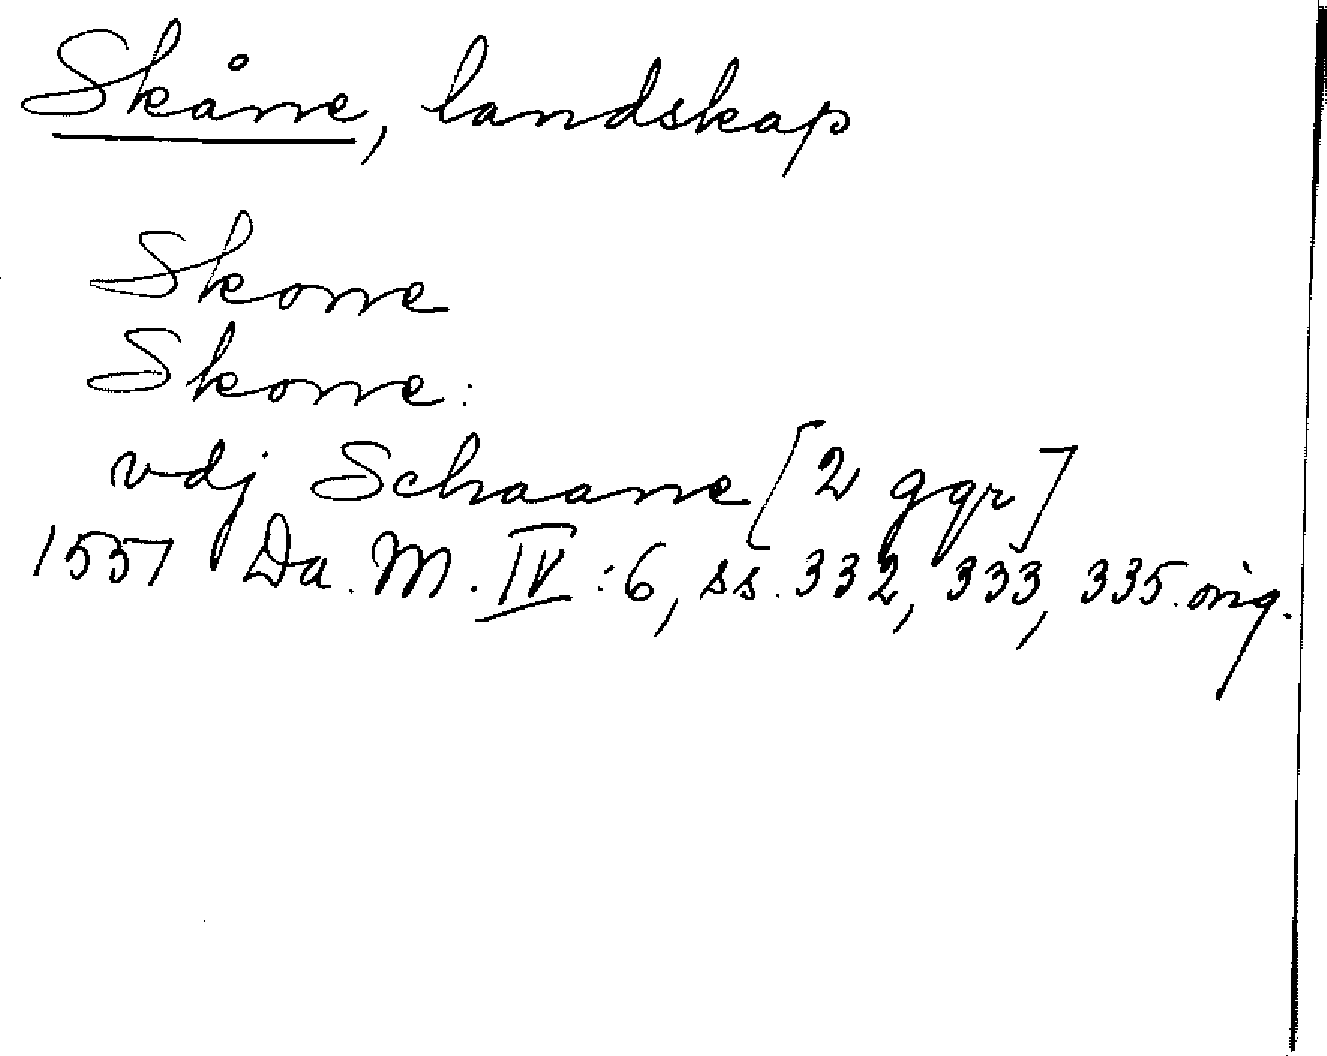 Skåne, landskap
Skone
Skone:
vdj Schaane [2 ggr]
1537 Da. M. IV:6, ss. 332, 333, 335. orig.